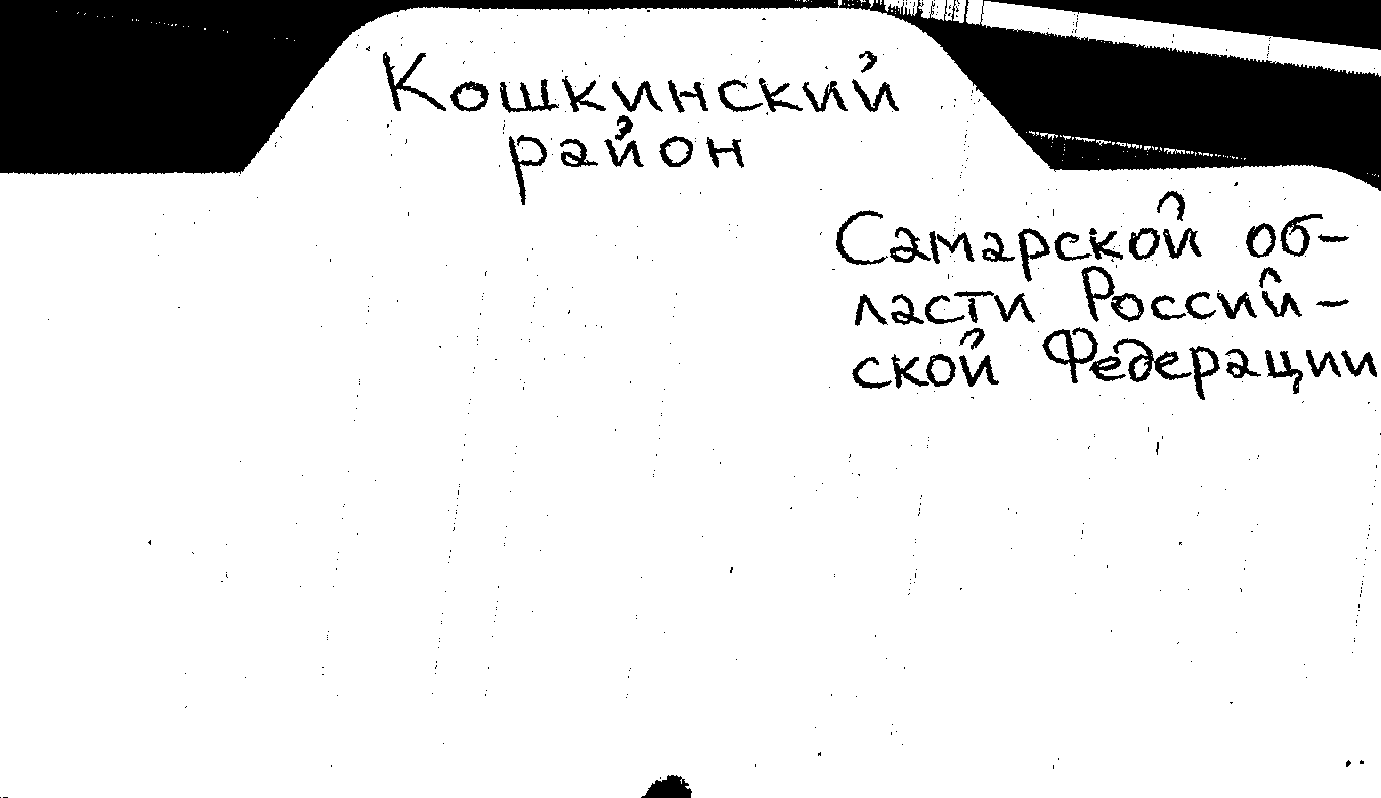 Кошкинский
район
Самарской об-
ласти Россий-
ской Федерации